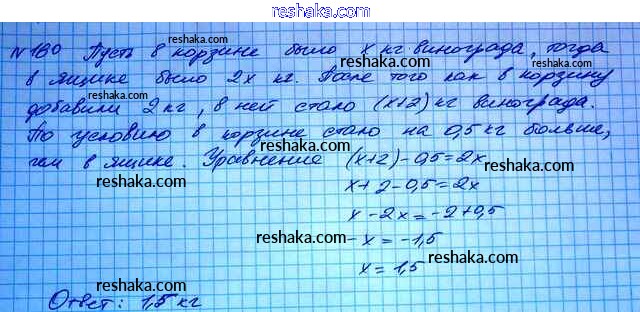 reshaka.com
№180 Пусть в корзине было x кг винограда, тогда
в ящике было 2x кг. После того как в корзину
добавили 2 кг, в ней стало (x+2) кг винограда.
По условию в корзине стало на 0,5 кг больше,
чем в ящике. Уравнение (x+2)-0,5=2x
x+2-0,5=2x
x-2x=-2+0,5
-x=-1,5
x=1,5
Ответ: 1,5 кг
reshaka.com
reshaka.com
reshaka.com
reshaka.com
reshaka.com
reshaka.com
reshaka.com
reshaka.com
reshaka.com
reshaka.com
reshaka.com
reshaka.com